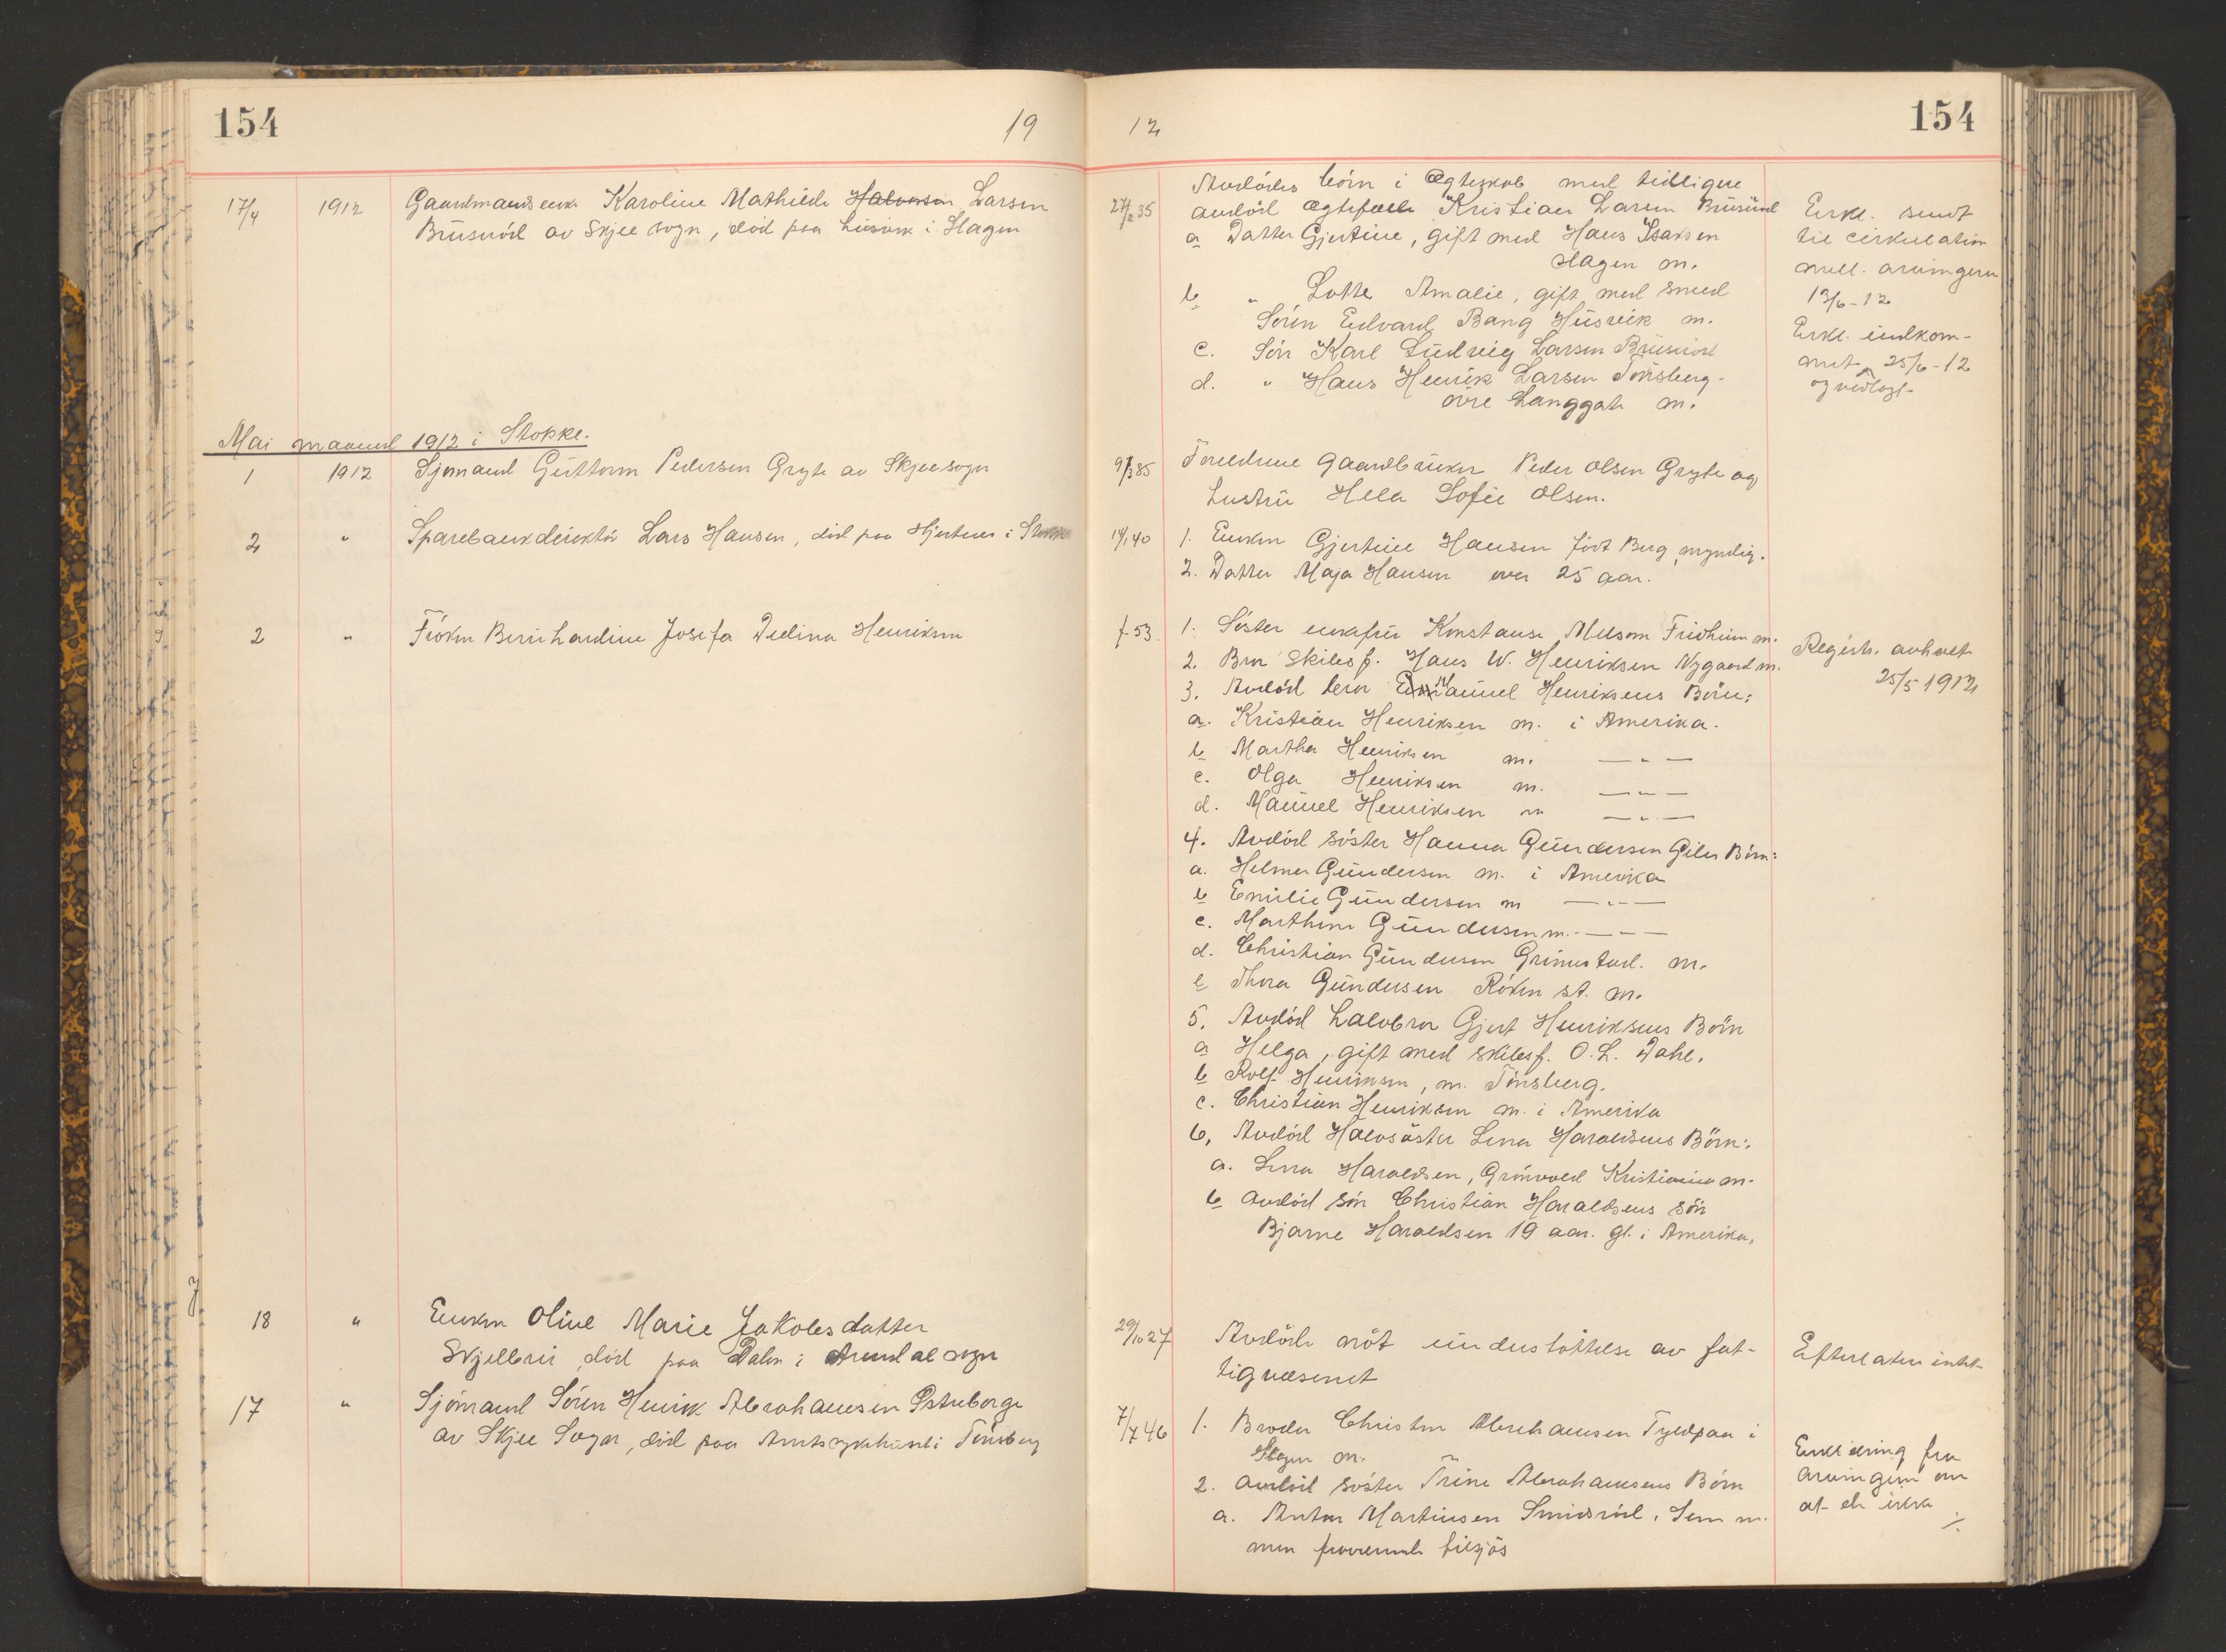 154
19
17/4 1912 Gaardmandsenke Karoline Mathilde Halvorsen Larsen
Brusrød av Skjee sogn, død paa Husvik i Slagen
Mai maaned 1912 i Stokke.
1 1912 Sjømand Guttorm Pedersen Gryte av Skjee sogn
2 " Sparebankdirektør Lars Hansen, død paa Hjertnes i Stokke
2 " Frøken Bernhardine Josefa Delina Henriksen
18 " Enken Oline Marie Jakobsdatter
død paa Dalen i Arendal sogn
17 " Sjømand Søren Henrik Abrahamsen
av Skjee Sogn, død paa Amtssykehuset i Tønsberg
12
154
27/2 35 Avdødes børn i Ægteskab med tidligere
avdød ægtefælle Kristian Larsen Brusrød
a Datter Gjertine, gift med Hans Isaksen
Slagen m.
b " Lotte Amalie, gift med smed
Søren Edvard Bang Husvik m.
c. Søn Karl Ludvig Larsen Brusrød
d. " Hans Henrik Larsen Tønsberg-
øvre Langgate m.
Erkl. sendt
til cirkulation
mell. arvingerne
12/6-12
Erkl. indkom-
met 25/6-12
og vedlagt-
9/3 85 Forældrene Gaardbruker Peder Olsen Gryte og
hustru Hela Sofie Olsen.
14/1 40 1. Enken Gjertine Hansen født Berg, myndig.
2. Datter Maja Hansen over 25 aar.
f. 53. 1. Søster enkefru Konstanse Melsom Fridheim m.
2. Bror skibsf. Hans W. Henriksen Nygaard m.
3. Avdød bror Emanuel Henriksens Børn:
a. Kristian Henriksen m. i Amerika.
b Martha Henriksen m. — " —
c. Olga Henriksen m. — " —
d. Manuel Henriksen m — " —
4. Avdød søster Hanna Gundersen Giles Børn:
a. Helmer Gundersen m. i Amerika
b Emilie Gundersen m — " —
c. Marthin Gundersen m. — " —
d. Christian Gundersen Grimestad. m.
e Thora Gundersen Råen st. m.
5. Avdød Halvbror Gjert Henriksens Børn
a Helga, gift med skibsf. O. L. Dahl.
b Rolf Henriksen, m. Tønsberg.
c. Christian Henriksen m. i Amerika
6. Avdød Halvsøster Lena Haraldsens Børn:
a. Lena Haraldsen, Grønvold Kristiania m.
b avdød søn Christian Haraldsens søn
Bjarne Haraldsen 19 aar. gl. i Amerika.
Registr. avholdt
25/5 1912
29/10 27 Avdøde nøt understøttelse av fat-
tigvæsenet
Efterlater intet
7/7 46 1. Broder Christen Abrahamsen i
Slagen m.
2. avdød søster Trine Abrahamsens Børn
a. Anton Martinsen Smidsrød. Sem m.
men fraværende tilsjøs
Erklæring fra
arvingene om
at de ikke
./.